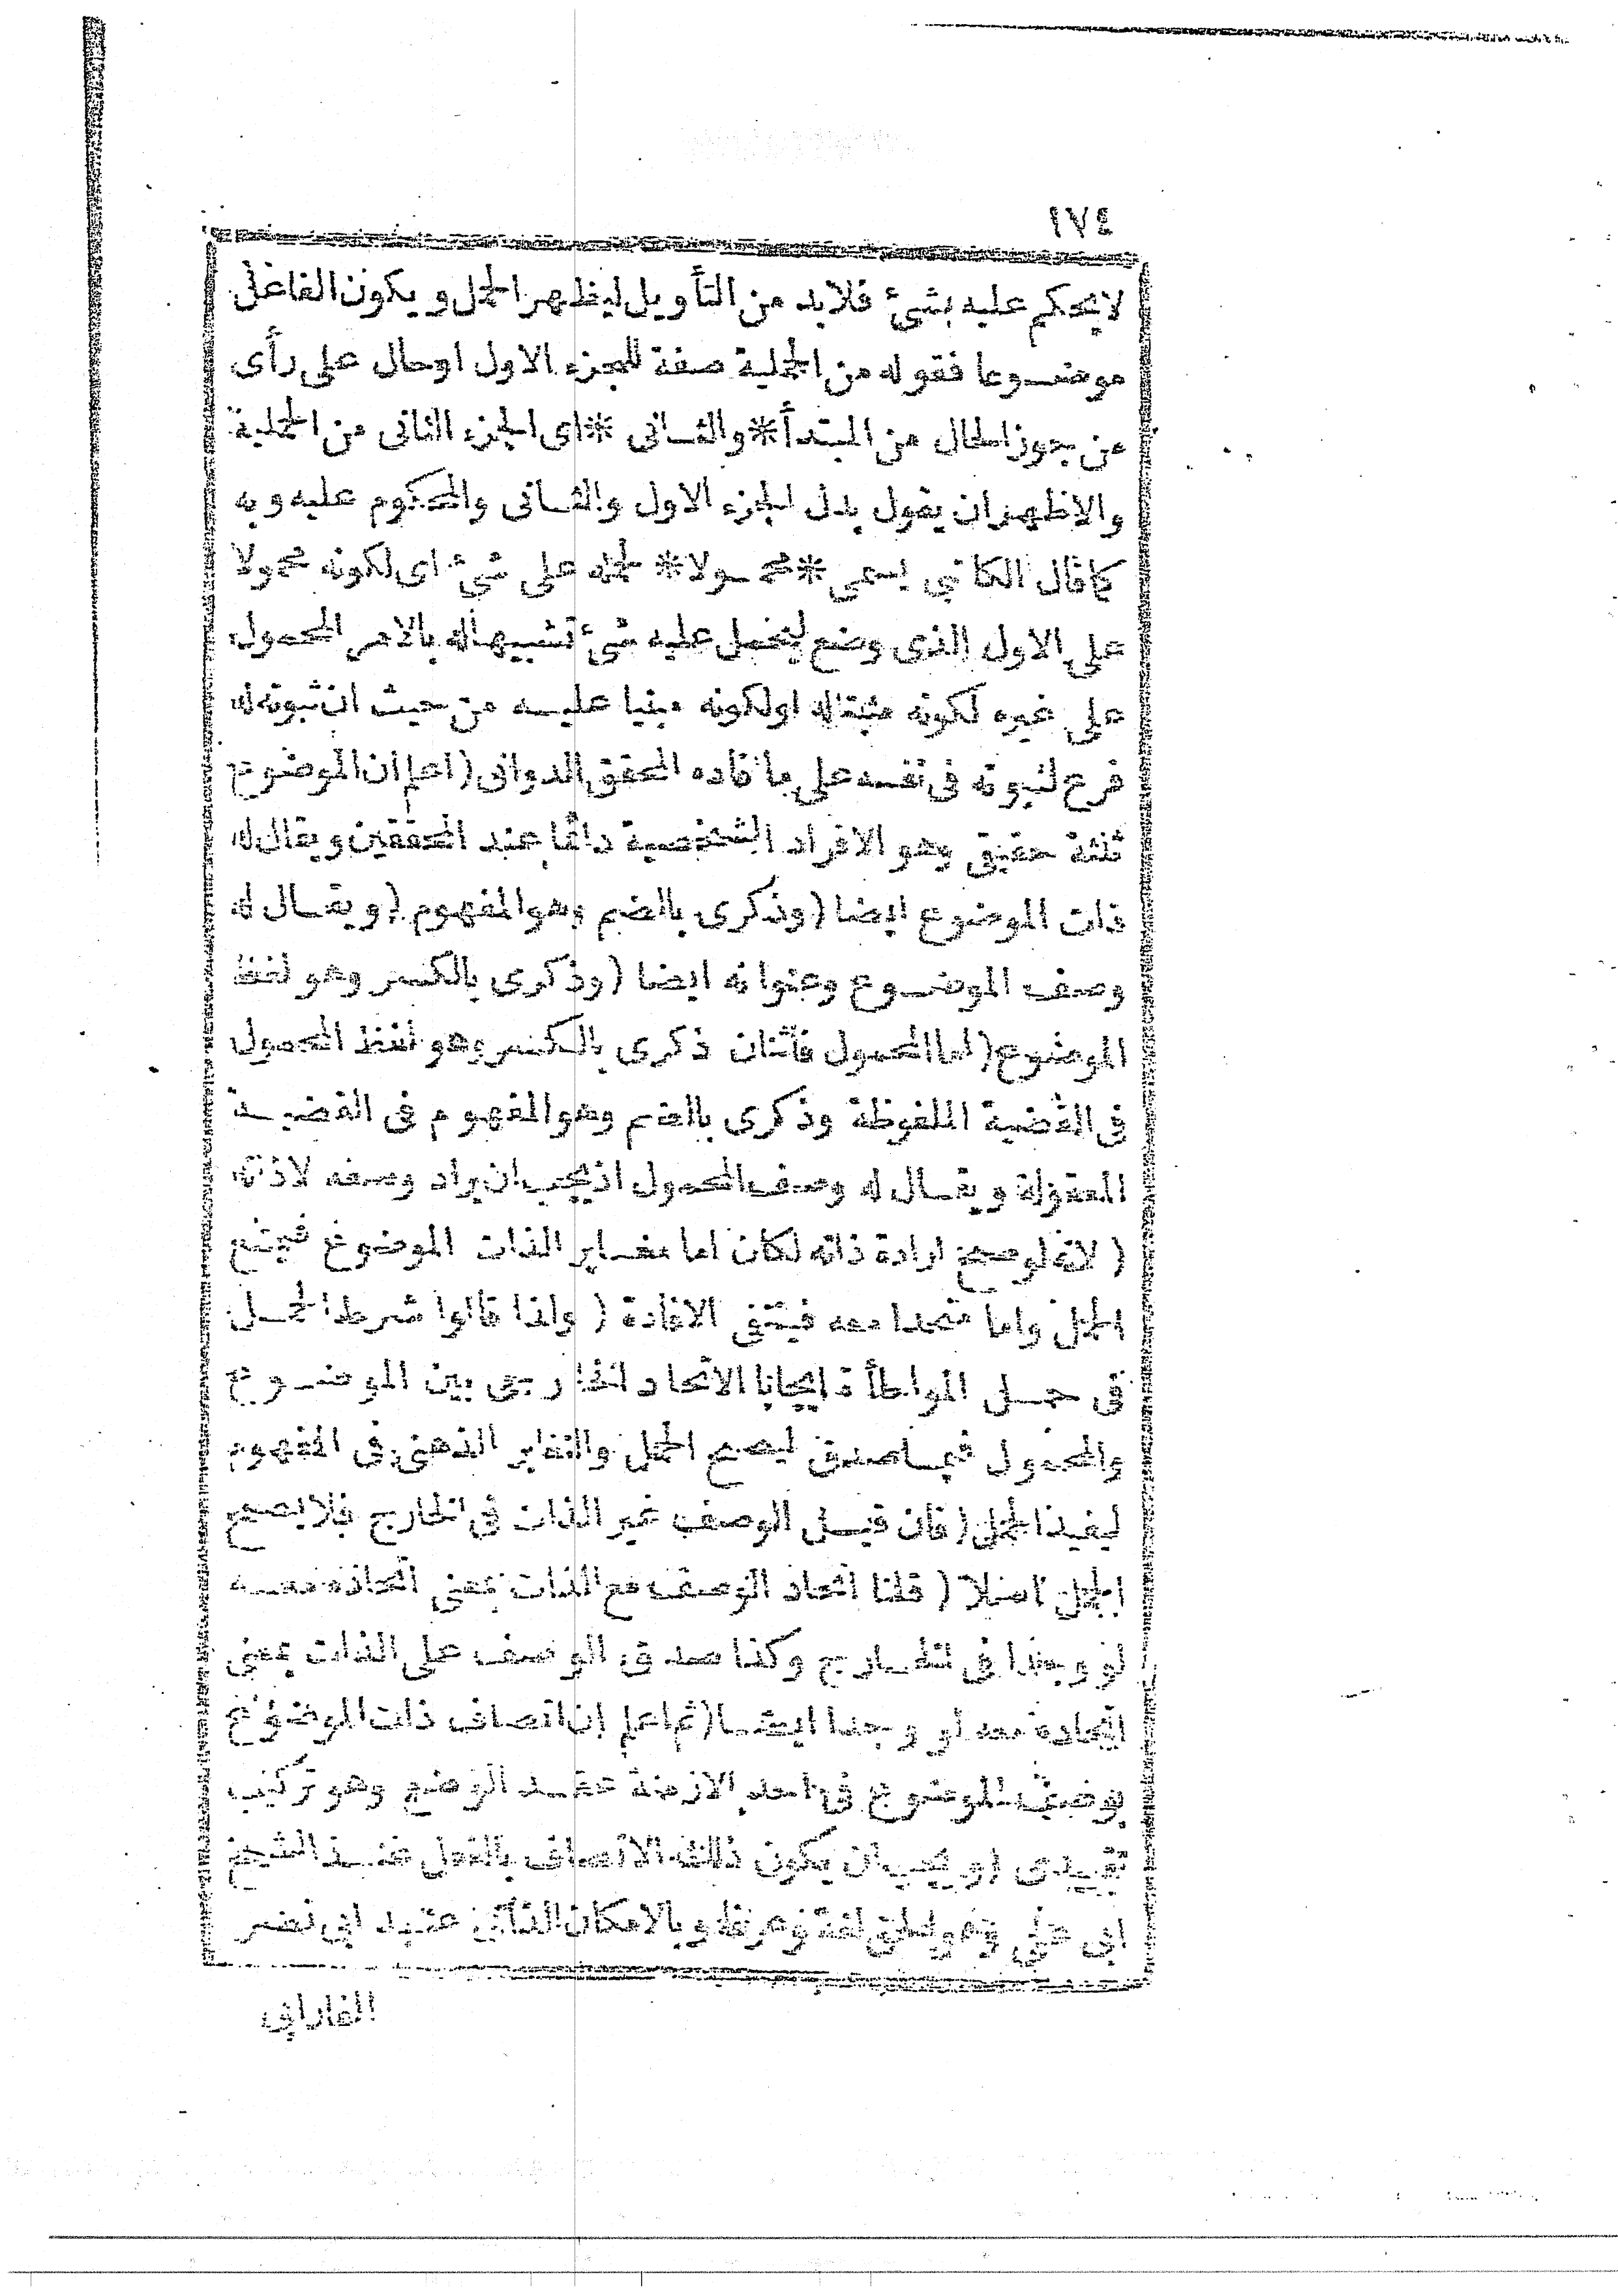 ١٧٤
لا يحكم عليه بشئ فلابد من التأويل ليظهر الحمل ويكون الفاعل
موضوعا فقوله من الحملية صفة للجزء الاول اوحال على رأى
من يجوز الحال من المبتدأ * والثانى * اى الجزء الثانى من الحملية
والاظهر ان يقول بدل الجزء الاول والثانى والمحكوم عليه وبه
كما قال الكاتبى يسمى * محمولا * لحمله على شئ اى لكونه محمولا
على الاول الذى وضع ليحمل عليه شئ تشبيها له بالامر المحمول
على غيره لكونه مثبتا له اولكونه مبنيا عليه من حيث ان ثبوته له
فرع لثبوته فى نفسه على ما افاده المحقق الدوانى ( اعلم ان الموضوع
ثلثة حقيقى وهو الافراد الشخصية دائما عند المحققين ويقال له
ذات الموضوع ايضا ( وذكرى بالضم وهو المفهوم ( ويقال له
وصف الموضوع وعنوانه ايضا ( وذكرى بالكسر وهو لفظ
الموضوع ( اما المحمول فاثنان ذكرى بالكسر وهو لفظ المحمول
فى القضية الملفوظة وذكرى بالضم وهو المفهوم فى القضية
المعقولة ويقال له وصف المحمول اذ يجب ان يراد وصفه لاذاته
( لانه لوصح ارادة ذاته لكان اما مغاير الذات الموضوع فيمتنع
الحمل واما متحدا معه فينتفى الافادة ( ولذا قالوا شرط الحمل
فى حمل المواطأة ايجابا الاتحاد الخارجى بين الموضوع
والمحمول فيما صدق ليصح الحمل والتغاير الذهنى فى المفهوم
ليفيد الحمل ( فان قيل الوصف غير الذات فى الخارج فلا يصح
الحمل اصلا ( قلنا اتحاد الوصف مع الذات بمعنى اتحاده معه
لو وجدا فى الخارج وكذا صدق الوصف على الذات بمعنى
اتحاده معه لو وجدا ايضا ( ثم اعلم ان اتصاف ذات الموضوع
بوصف الموضوع فى احد الازمنة عقد الوضع وهو تركيب
تقييدى ( ويجب ان يكون ذلك الاتصاف بالفعل عند الشيخ
ابى على وهو الحق لغة وعرفا وبالامكان الذاتى عند ابى نصر
الفارابى